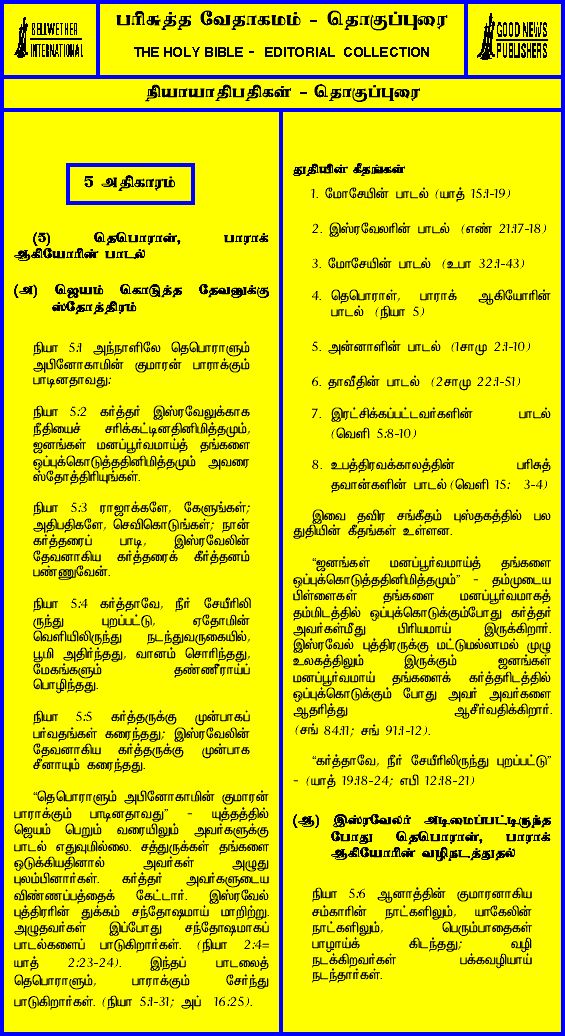 BELLWETHER
INTERNATIONAL
பரிசுத்த வேதாகமம் - தொகுப்புரை
THE HOLY BIBLE - EDITORIAL COLLECTION
GOOD NEWS
PUBLISHERS
நியாயாதிபதிகள் - தொகுப்புரை
5 அதிகாரம்
(5) தெபொராள், பாராக்
ஆகியோரின் பாடல்
(அ) ஜெயம் கொடுத்த தேவனுக்கு
ஸ்தோத்திரம்
நியா 5:1 அந்நாளிலே தெபொராளும்
அபினோகாமின் குமாரன் பாராக்கும்
பாடினதாவது:
நியா 5:2 கர்த்தர் இஸ்ரவேலுக்காக
நீதியைச் சரிக்கட்டினதினிமித்தமும்,
ஜனங்கள் மனப்பூர்வமாய்த் தங்களை
ஒப்புக்கொடுத்ததினிமித்தமும் அவரை
ஸ்தோத்திரியுங்கள்.
நியா 5:3 ராஜாக்களே, கேளுங்கள்;
அதிபதிகளே, செவிகொடுங்கள்; நான்
கர்த்தரைப் பாடி, இஸ்ரவேலின்
தேவனாகிய கர்த்தரைக் கீர்த்தனம்
பண்ணுவேன்.
நியா 5:4 கர்த்தாவே, நீர் சேயீரிலி
ருந்து புறப்பட்டு, ஏதோமின்
வெளியிலிருந்து நடந்துவருகையில்,
பூமி அதிர்ந்தது, வானம் சொரிந்தது,
மேகங்களும் தண்ணீராய்ப்
பொழிந்தது.
நியா 5:5 கர்த்தருக்கு முன்பாகப்
பர்வதங்கள் கரைந்தது; இஸ்ரவேலின்
தேவனாகிய கர்த்தருக்கு முன்பாக
சீனாயும் கரைந்தது.
“தெபொராளும் அபினோகாமின் குமாரன்
பாராக்கும் பாடினதாவது” - யுத்தத்தில்
ஜெயம் பெறும் வரையிலும் அவர்களுக்கு
பாடல் எதுவுமில்லை. சத்துருக்கள் தங்களை
ஒடுக்கியதினால் அவர்கள் அழுது
புலம்பினார்கள். கர்த்தர் அவர்களுடைய
விண்ணப்பத்தைக் கேட்டார். இஸ்ரவேல்
புத்திரரின் துக்கம் சந்தோஷமாய் மாறிற்று.
அழுதவர்கள் இப்போது சந்தோஷமாகப்
பாடல்களைப் பாடுகிறார்கள். (நியா 2:4=
யாத் 2:23-24). இந்தப் பாடலைத்
தெபொராளும், பாராக்கும் சேர்ந்து
பாடுகிறார்கள். (நியா 5:1-31; அப் 16:25).
துதியின் கீதங்கள்
1. மோசேயின் பாடல் (யாத் 15:1-19)
2. இஸ்ரவேலரின் பாடல் (எண் 21:17-18)
3. மோசேயின் பாடல் (உபா 32:1-43)
4. தெபொராள், பாராக் ஆகியோரின்
பாடல் (நியா 5)
5. அன்னாளின் பாடல் (1சாமு 2:1-10)
6. தாவீதின் பாடல் (2சாமு 22:1-51)
7. இரட்சிக்கப்பட்டவர்களின் பாடல்
(வெளி 5:8-10)
8. உபத்திரவக்காலத்தின் பரிசுத்
தவான்களின் பாடல் (வெளி 15: 3-4)
இவை தவிர சங்கீதம் புஸ்தகத்தில் பல
துதியின் கீதங்கள் உள்ளன.
“ஜனங்கள் மனப்பூர்வமாய்த் தங்களை
ஒப்புக்கொடுத்ததினிமித்தமும்” - தம்முடைய
பிள்ளைகள் தங்களை மனப்பூர்வமாகத்
தம்மிடத்தில் ஒப்புக்கொடுக்கும்போது கர்த்தர்
அவர்கள்மீது பிரியமாய் இருக்கிறார்.
இஸ்ரவேல் புத்திரருக்கு மட்டுமல்லாமல் முழு
உலகத்திலும் இருக்கும் ஜனங்கள்
மனப்பூர்வமாய் தங்களைக் கர்த்தரிடத்தில்
ஒப்புக்கொடுக்கும் போது அவர் அவர்களை
ஆதரித்து ஆசீர்வதிக்கிறார்.
(சங் 84:11; சங் 91:1-12).
“கர்த்தாவே, நீர் சேயீரிலிருந்து புறப்பட்டு”
- (யாத் 19:18-24; எபி 12:18-21)
(ஆ) இஸ்ரவேலர் அடிமைப்பட்டிருந்த
போது தெபொராள், பாராக்
ஆகியோரின் வழிநடத்துதல்
நியா 5:6 ஆனாத்தின் குமாரனாகிய
சம்காரின் நாட்களிலும், யாகேலின்
நாட்களிலும், பெரும்பாதைகள்
பாழாய்க் கிடந்தது; வழி
நடக்கிறவர்கள் பக்கவழியாய்
நடந்தார்கள்.